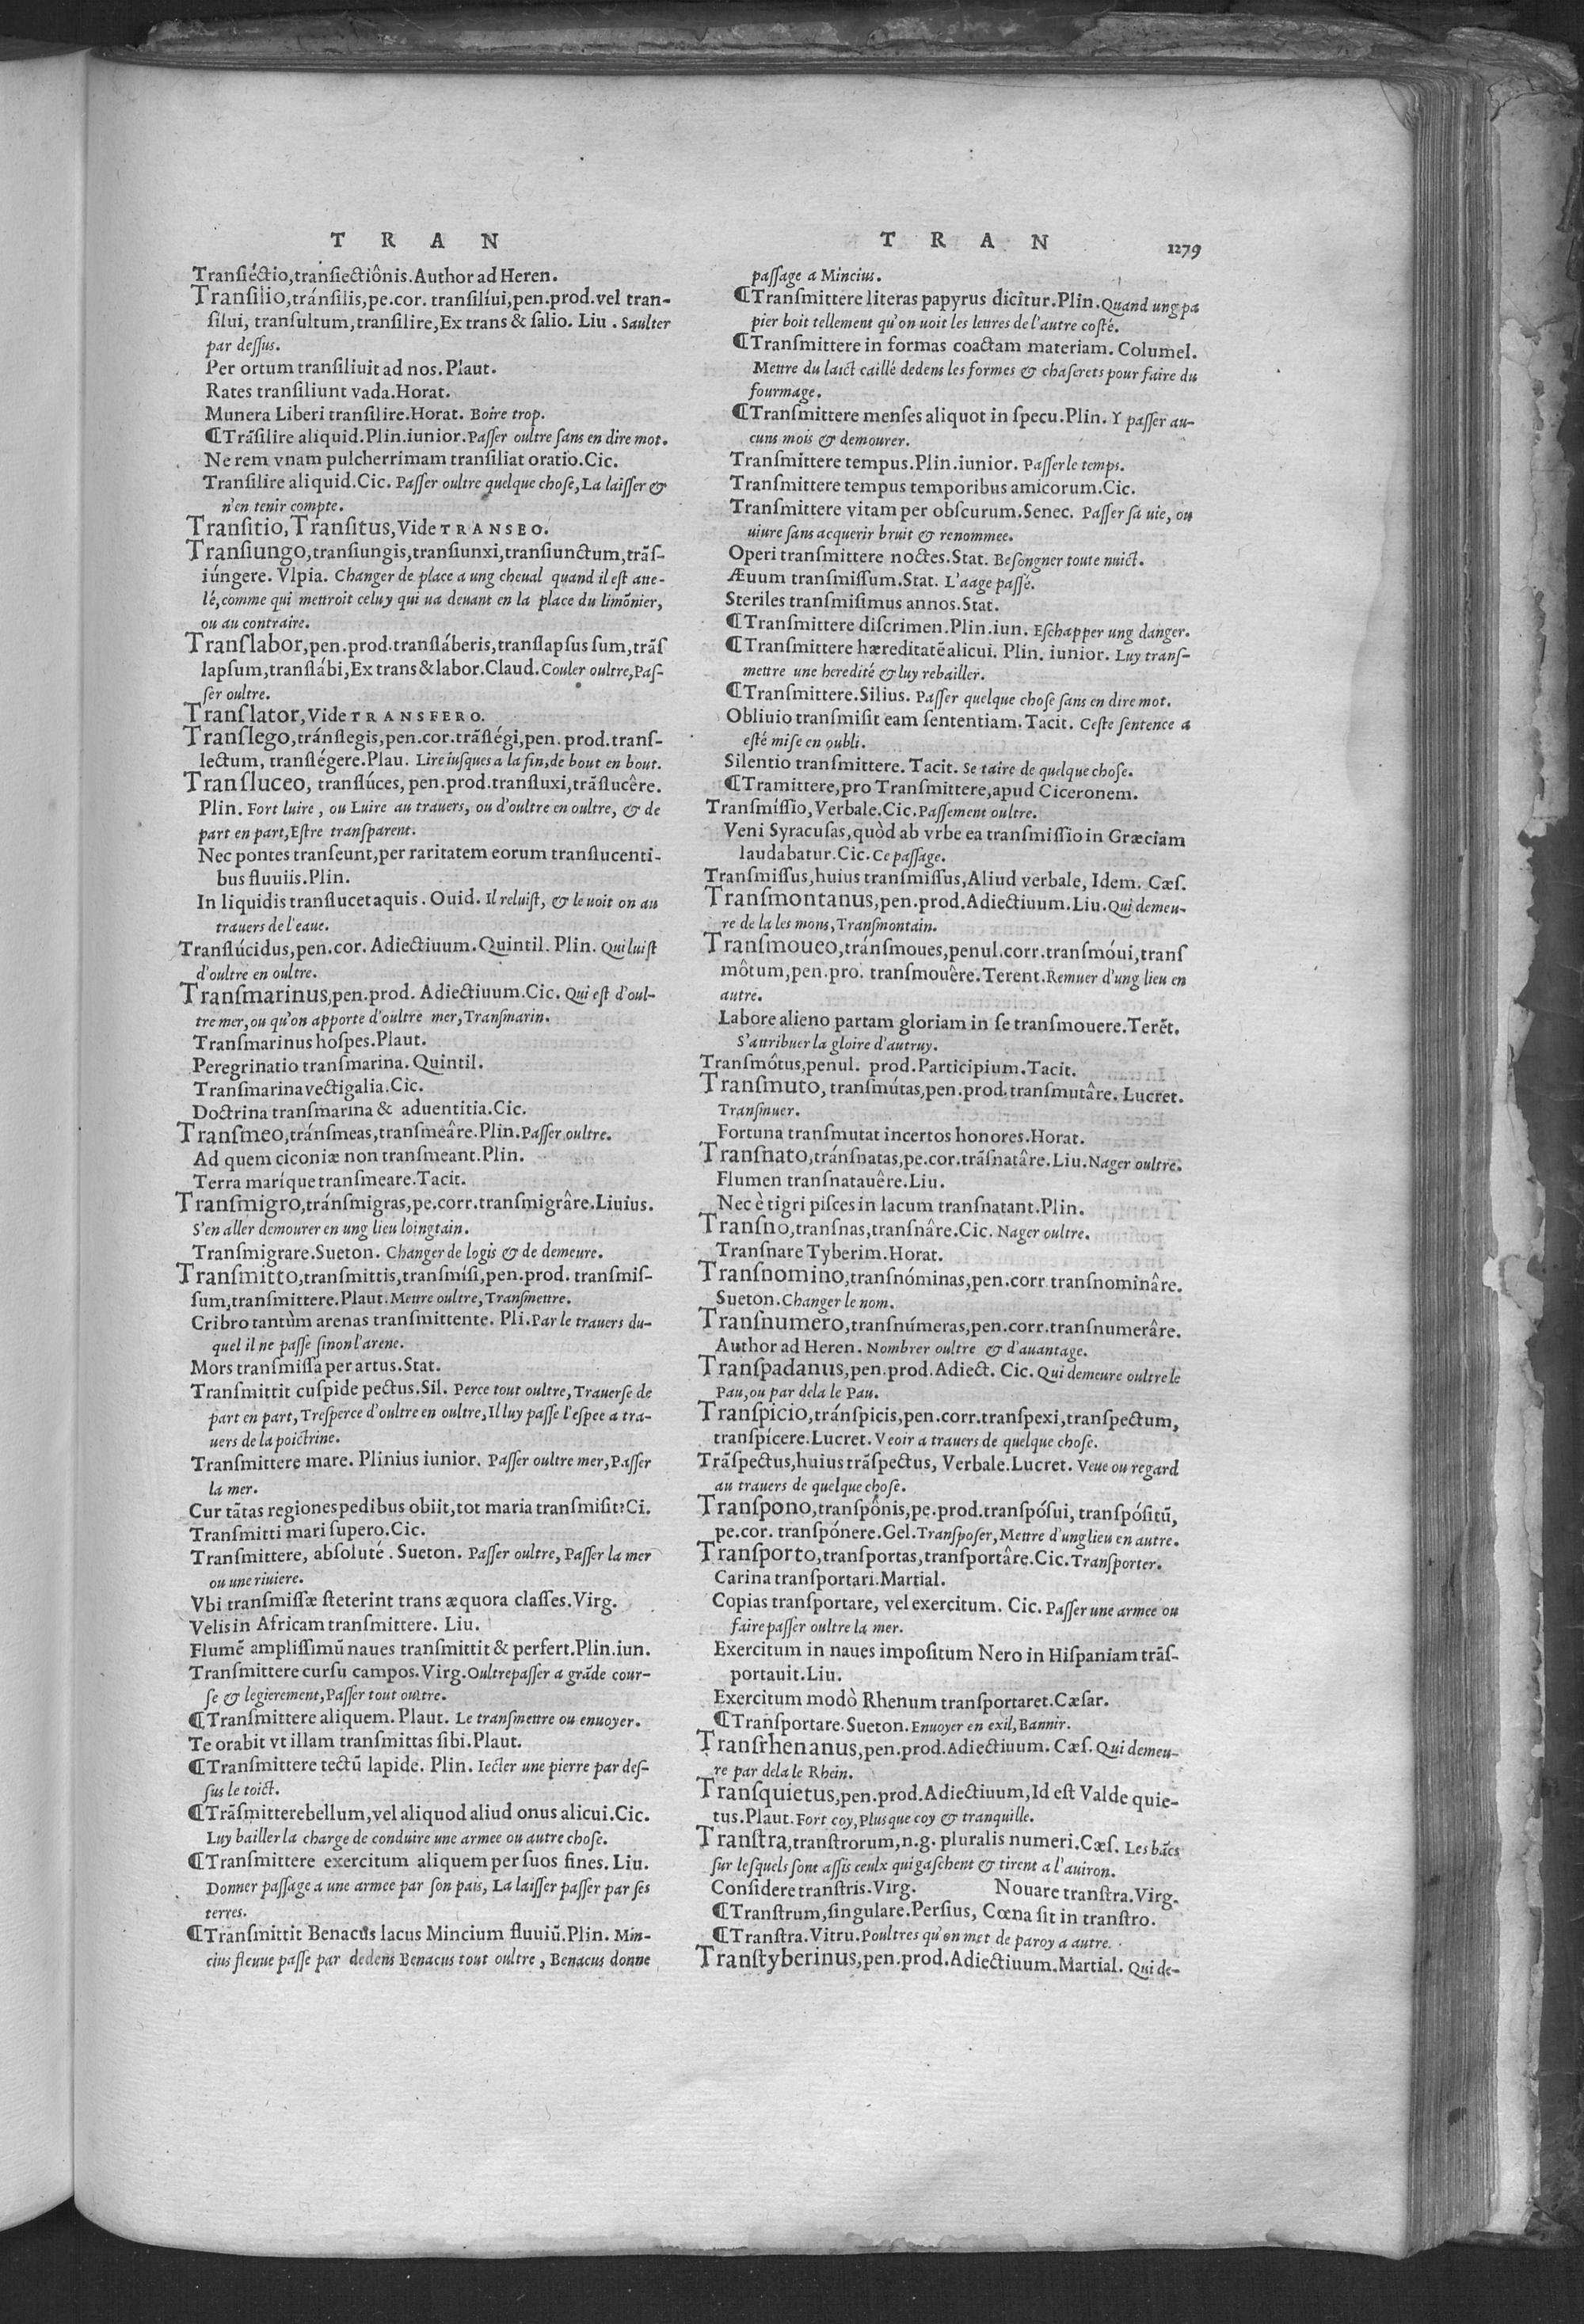 T R A N
Transiéctio, transiectiônis. Author ad Heren.
Transilio, tránsilis, pe. cor. transilíui, pen. prod. vel tran-
silui, transultum, transilire, Ex trans & salio. Liu. Saulter
par dessus.
Per ortum transiliuit ad nos. Plaut.
Rates transiliunt vada. Horat.
Munera Liberi transilire. Horat. Boire trop.
¶Trãsilire aliquid. Plin. iunior. Passer oultre sans en dire mot.
Ne rem vnam pulcherrimam transiliat oratio. Cic.
Transilire aliquid. Cic. Passer oultre quelque chose, La laisser &
n'en tenir compte.
Transitio, Transitus, Vide TRANSEO.
Transiungo, transiungis, transiunxi, transiunctum, trãs-
iúngere. Vlpia. Changer de place a ung cheual quand il est atte-
lé, comme qui mettroit celuy qui ua deuant en la place du limõnier,
ou au contraire.
Translabor, pen. prod. transláberis, translapsus sum, trãs
lapsum, translábi, Ex trans & labor. Claud. Couler oultre, Pas-
ser oultre.
Translator, Vide TRANSFERO.
Translego, tránslegis, pen. cor. trãslégi, pen. prod. trans-
lectum, translégere. Plau. Lire iusques a la fin, de bout en bout.
Transluceo, translúces, pen. prod. transluxi, trãslucêre.
Plin. Fort luire, ou Luire au trauers, ou d'oultre en oultre, & de
part en part, Estre transparent.
Nec pontes transeunt, per raritatem eorum translucenti-
bus fluuiis. Plin.
In liquidis translucet aquis. Ouid. Il reluist, & le uoit on au
trauers de l'eaue.
Translúcidus, pen. cor. Adiectiuum. Quintil. Plin. Qui luist
d'oultre en oultre.
Transmarinus, pen. prod. Adiectiuum. Cic. Qui est d'oul-
tre mer, ou qu'on apporte d'oultre mer, Transmarin.
Transmarinus hospes. Plaut.
Peregrinatio transmarina. Quintil.
Transmarina vectigalia. Cic.
Doctrina transmarina & aduentitia. Cic.
Transmeo, tránsmeas, transmeâre. Plin. Passer oultre.
Ad quem ciconiæ non transmeant. Plin.
Terra marique transmeare. Tacit.
Transmigro, tránsmigras, pe. corr. transmigrâre. Liuius.
S'en aller demourer en ung lieu loingtain.
Transmigrare. Sueton. Changer de logis & de demeure.
Transmitto, transmittis, transmísi, pen. prod. transmis-
sum, transmittere. Plaut. Mettre oultre, Transmettre.
Cribro tantùm arenas transmittente. Pli. Par le trauers du-
quel il ne passe sinon l'arene.
Mors transmissa per artus. Stat.
Transmittit cuspide pectus. Sil. Perce tout oultre, Trauerse de
part en part, Tresperce d'oultre en oultre, Il luy passe l'espee a tra-
uers de la poictrine.
Transmittere mare. Plinius iunior. Passer oultre mer, Passer
la mer.
Cur tãtas regiones pedibus obiit, tot maria transmisit? Ci.
Transmitti mari supero. Cic.
Transmittere, absoluté. Sueton. Passer oultre, Passer la mer
ou une riuiere.
Vbi transmissæ steterint trans æquora classes. Virg.
Velis in Africam transmittere. Liu.
Flumẽ amplissimũ naues transmittit & perfert. Plin. iun.
Transmittere cursu campos. Virg. Oultrepasser a grãde cour-
se & legierement, Passer tout oultre.
¶Transmittere aliquem. Plaut. Le transmettre ou enuoyer.
Te orabit vt illam transmittas sibi. Plaut.
¶Transmittere tectũ lapide. Plin. Iecter une pierre par des-
sus le toict.
¶Trãsmittere bellum, vel aliquod aliud onus alicui. Cic.
Luy bailler la charge de conduire une armee ou autre chose.
¶Transmittere exercitum aliquem per suos fines. Liu.
Donner passage a une armee par son pais, La laisser passer par ses
terres.
¶Transmittit Benacus lacus Mincium fluuiũ. Plin. Min-
cius fleuue passe par dedens Benacus tout oultre, Benacus donne
T R A N 1279
passage a Mincius.
¶Transmittere literas papyrus dicitur. Plin. Quand ung pa
pier boit tellement qu'on uoit les lettres de l'autre costé.
¶Transmittere in formas coactam materiam. Columel.
Mettre du laict caillé dedens les formes & chaserets pour faire du
fourmage.
¶Transmittere menses aliquot in specu. Plin. Y passer au-
cuns mois & demourer.
Transmittere tempus. Plin. iunior. Passer le temps.
Transmittere tempus temporibus amicorum. Cic.
Transmittere vitam per obscurum. Senec. Passer sa uie, ou
uiure sans acquerir bruit & renommee.
Operi transmittere noctes. Stat. Besongner toute nuict.
Æuum transmissum. Stat. L'aage passé.
Steriles transmisimus annos. Stat.
¶Transmittere discrimen. Plin. iun. Eschapper ung danger.
¶Transmittere hæreditatẽ alicui. Plin. iunior. Luy trans-
mettre une heredité & luy rebailler.
¶Transmittere. Silius. Passer quelque chose sans en dire mot.
Obliuio transmisit eam sententiam. Tacit. Ceste sentence a
esté mise en oubli.
Silentio transmittere. Tacit. Se taire de quelque chose.
¶Tramittere, pro Transmittere, apud Ciceronem.
Transmíssio, Verbale. Cic. Passement oultre.
Veni Syracusas, quòd ab vrbe ea transmissio in Græciam
laudabatur. Cic. Ce passage.
Transmissus, huius transmissus, Aliud verbale, Idem. Cæs.
Transmontanus, pen. prod. Adiectiuum. Liu. Qui demeu-
re de la les mons, Transmontain.
Transmoueo, tránsmoues, penul. corr. transmóui, trans
môtum, pen. pro. transmouêre. Terent. Remuer d'ung lieu en
autre.
Labore alieno partam gloriam in se transmouere. Terẽt.
S'attribuer la gloire d'autruy.
Transmôtus, penul. prod. Participium. Tacit.
Transmuto, transmútas, pen. prod. transmutâre. Lucret.
Transmuer.
Fortuna transmutat incertos honores. Horat.
Transnato, tránsnatas, pe. cor. trãsnatâre. Liu. Nager oultre.
Flumen transnatauêre. Liu.
Nec è tigri pisces in lacum transnatant. Plin.
Transno, transnas, transnâre. Cic. Nager oultre.
Transnare Tyberim. Horat.
Transnomino, transnóminas, pen. corr. transnominâre.
Sueton. Changer le nom.
Transnumero, transnúmeras, pen. corr. transnumerâre.
Author ad Heren. Nombrer oultre & d'auantage.
Transpadanus, pen. prod. Adiect. Cic. Qui demeure oultre le
Pau, ou par dela le Pau.
Transpicio, tránspicis, pen. corr. transpexi, transpectum,
transpícere. Lucret. Veoir a trauers de quelque chose.
Trãspectus, huius trãspectus, Verbale. Lucret. Veue ou regard
au trauers de quelque chose.
Transpono, transpônis, pe. prod. transpósui, transpósitũ,
pe. cor. transpónere. Gel. Transposer, Mettre d'ung lieu en autre.
Transporto, transportas, transportâre. Cic. Transporter.
Carina transportari. Martial.
Copias transportare, vel exercitum. Cic. Passer une armee ou
faire passer oultre la mer.
Exercitum in naues impositum Nero in Hispaniam trãs-
portauit. Liu.
Exercitum modò Rhenum transportaret. Cæsar.
¶Transportare. Sueton. Enuoyer en exil, Bannir.
Transrhenanus, pen. prod. Adiectiuum. Cæs. Qui demeu-
re par dela le Rhein.
Transquietus, pen. prod. Adiectiuum, Id est Valde quie-
tus. Plaut. Fort coy, Plus que coy & tranquille.
Transtra, transtrorum, n. g. pluralis numeri. Cæs. Les bãcs
sur lesquels sont assis ceulx qui gaschent & tirent a l'auiron.
Considere transtris. Virg. Nouare transtra. Virg.
¶Transtrum, singulare. Persius, Cœna sit in transtro.
¶Transtra. Vitru. Poultres qu'on met de paroy a autre.
Transtyberinus, pen. prod. Adiectiuum. Martial. Qui de-